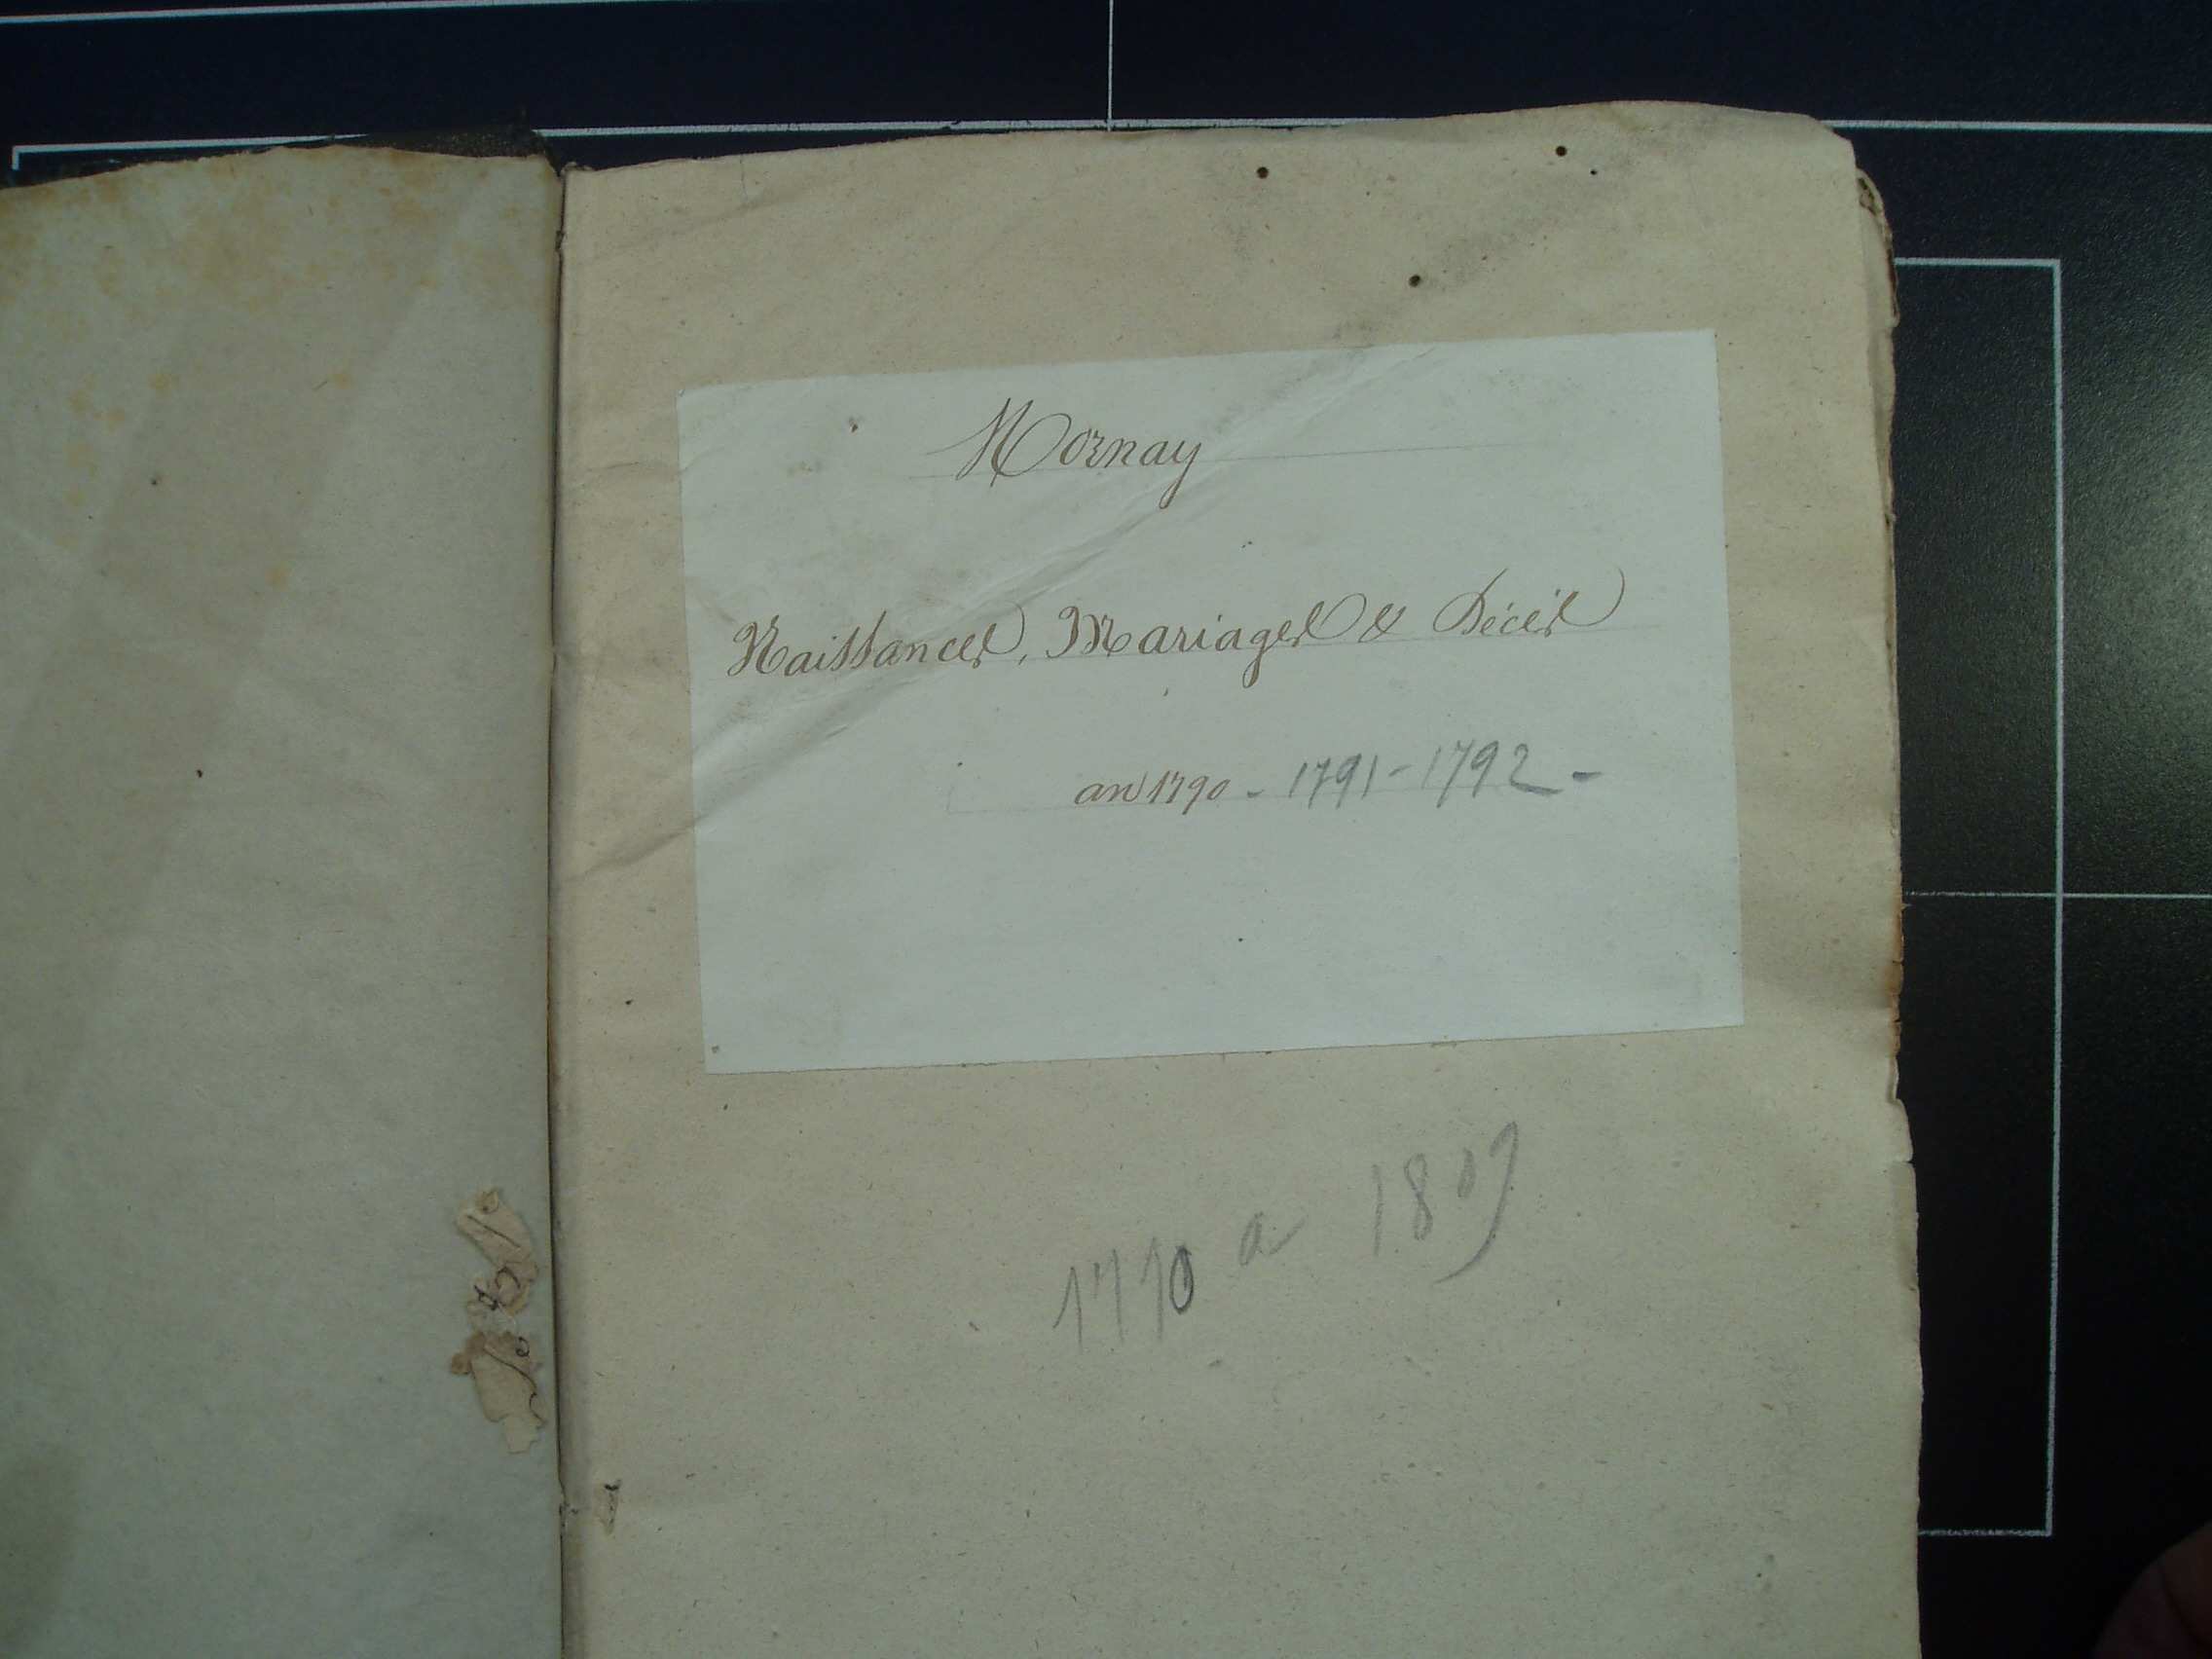 Mornay
Naissances, Mariages & Décès
an 1790 - 1791 - 1792 -
1790 a 1809